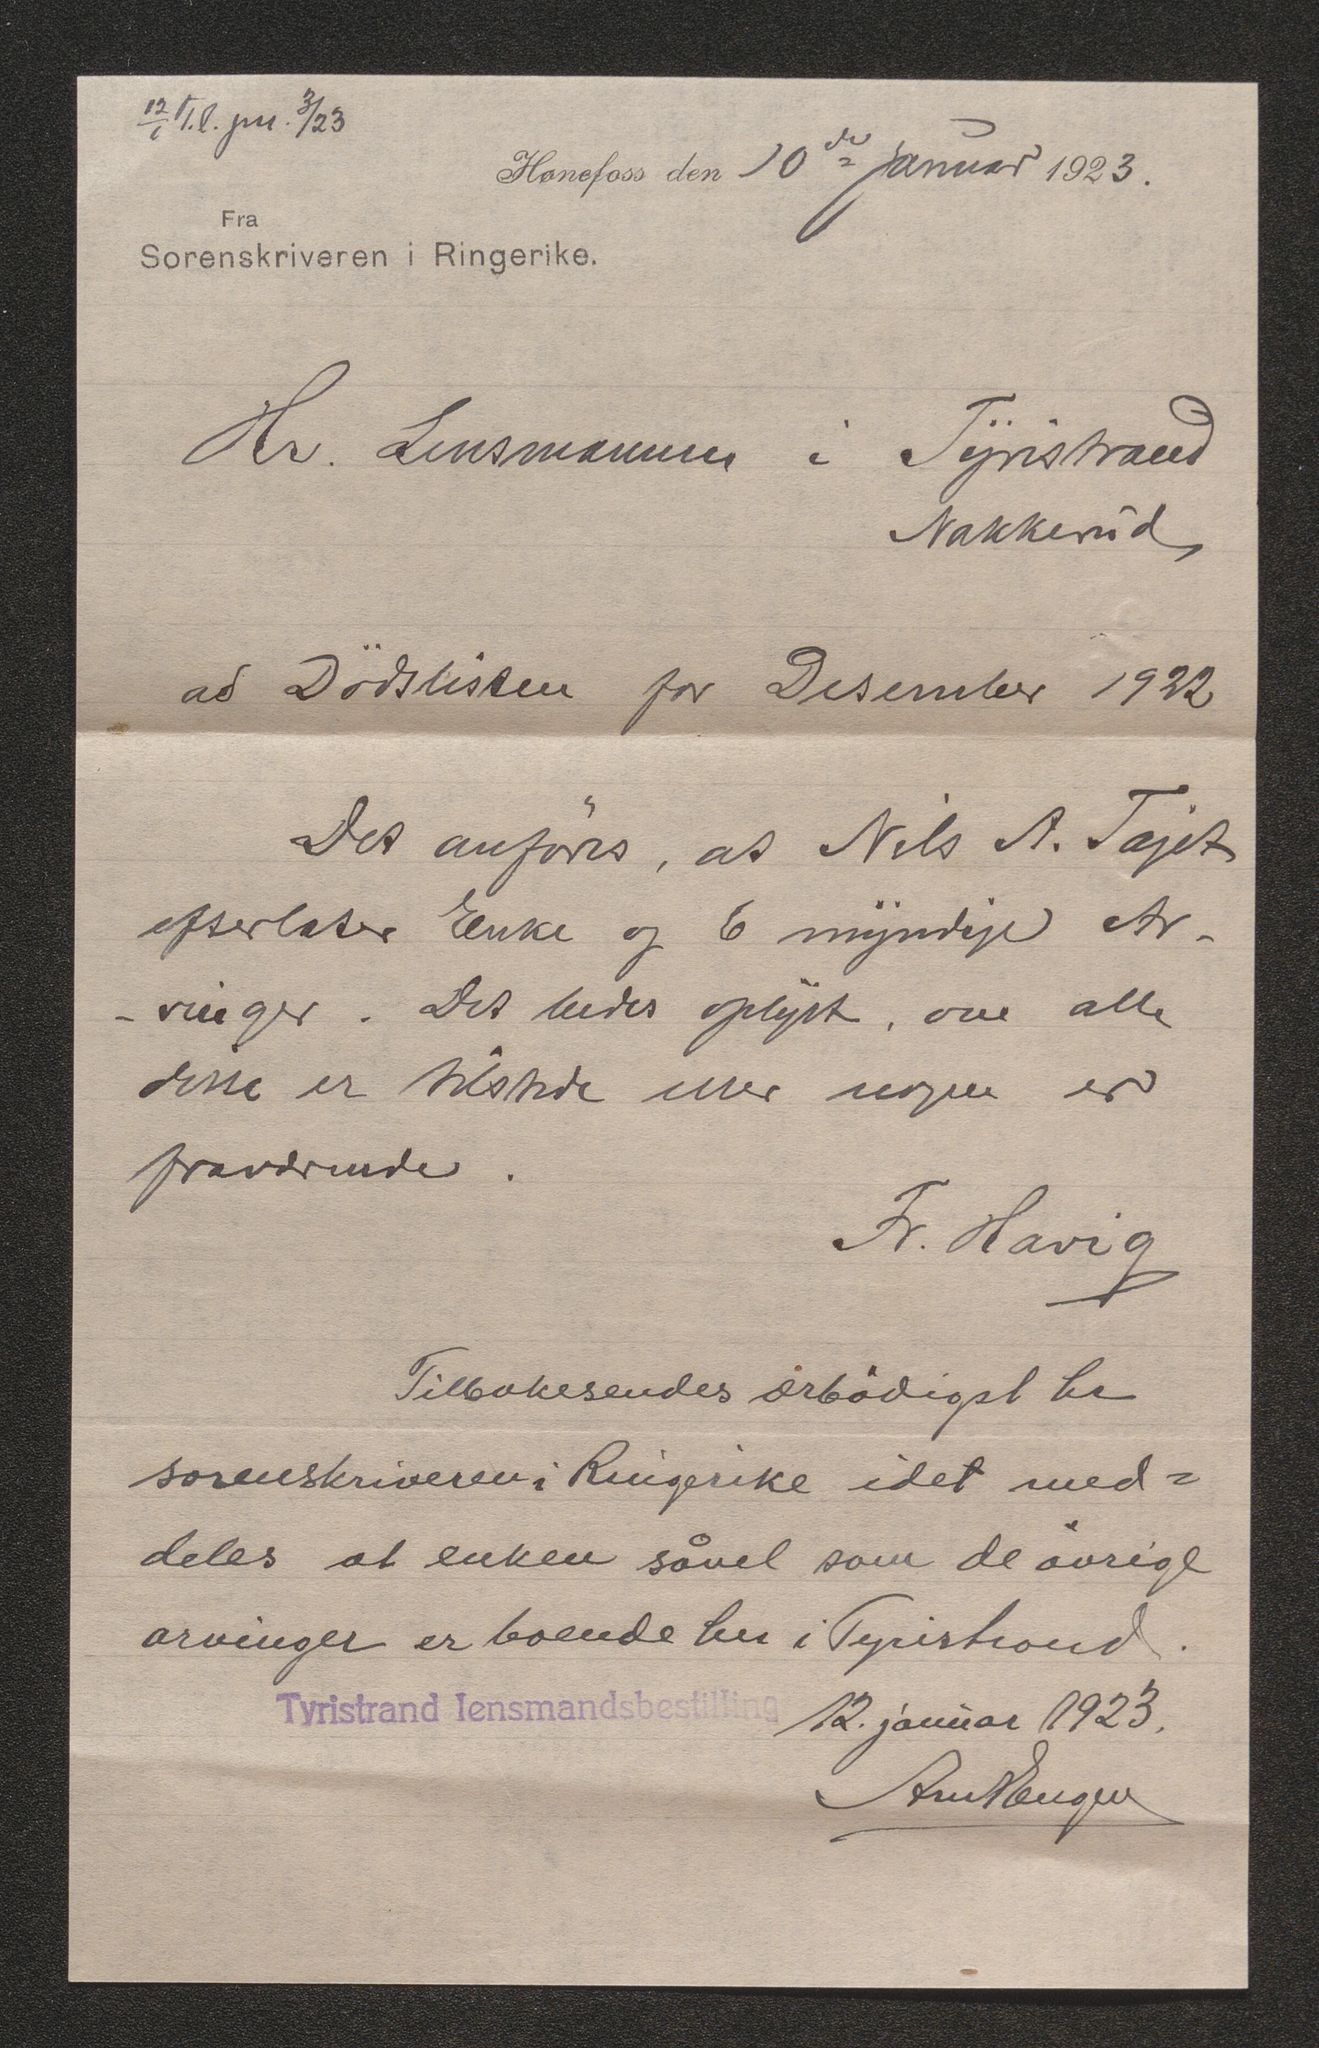 12/1 T.l. jnr. 3/23
Hønefoss den 10de januar 1923.
Fra
Sorenskriveren i Ringerike.
Hr. Lensmannen i Tyristrand
Nakkerud
ad Dödslisten for Desember 1922
Det anföres, at Nils A. Tajet
efterlater Enke og 6 myndige Ar-
-vinger. Det bedes oplyst, om alle
disse er tilstede eller nogen er
fraværende.
Fr. Havig
Tilbakesendes ærbödigst hr
sorenskriveren i Ringerike idet med=
deles at enken såvel som de övrige
arvinger er boende her i Tyristrand.
Tyristrand lensmandsbestilling 12. januar 1923.